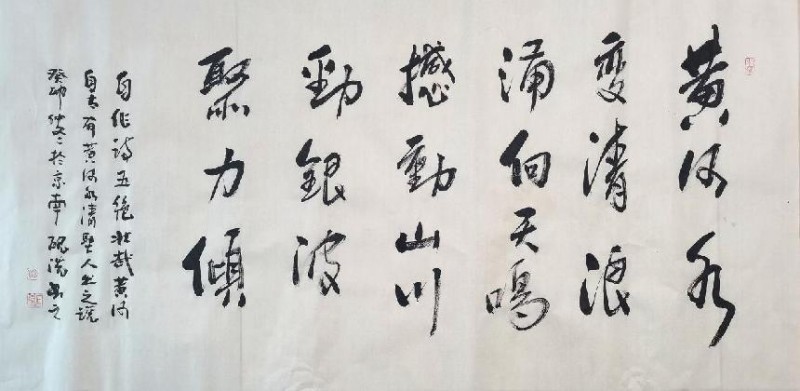 黄河水
变清浪
涌向天鸣
撼動山川
勁銀波
聚力傾
自作诗五绝壮哉黄河
自古有黄河水清圣人出之说
癸卯 於京南 砚 书之